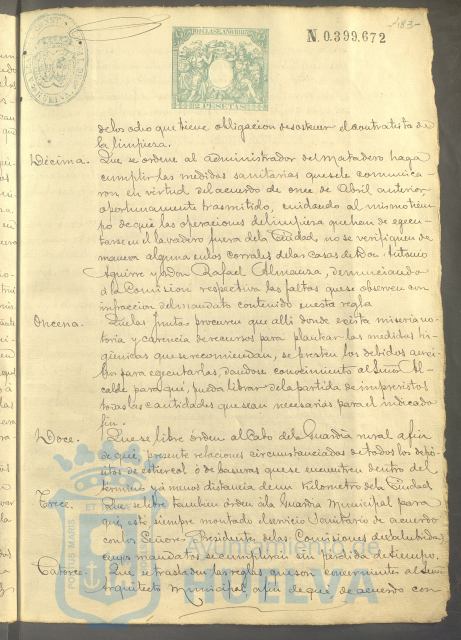 183-
N. 0.399.672
10ª CLASE. AÑO 1887
2 PESETAS
de los ocho que tiene obligacion de sostener el contratista de
la limpieza.
Décima. Que se ordene al Administrador del Matadero haga
cumplir las medidas sanitarias que se le comunica
ron en virtud del acuerdo de once de Abril anterior
oportunamente trasmitido, cuidando al mismo tiem
po de que las operaciones de limpieza que han de ejecu
tarse en el lavadero fuera de la Ciudad, no se verifiquen de
manera alguna en los corrales de las casas de Don Antonio
Aguirre y Don Rafael Almansa, denunciando
á la Comision respectiva las faltas que se observen con
infraccion del mandato contenido en esta regla
Oncena. Que las Juntas procuren que alli donde exista miseria no
toria y carencia de recursos para plantear las medidas hi
giénicas que se recomiendan, se presten los debidos auxi
lios para ejecutarlas, dandose conocimiento al Señor Al
calde para que, pueda librar de la partida de imprevistos
todas las cantidades que sean necesarias para el indicado
fin.
Doce. Que se libre órden al Cabo de la Guardia rural a fin
de que, presente relaciones circunstanciadas de todos los depó
sitos de estiercol ó de basuras que se encuentren dentro del
término y á menos distancia de un Kilometro de la Ciudad.
Trece. Que se libre tambien órden á la Guardia Municipal para
que, esté siempre montado el servicio Sanitario de acuerdo
con los Señores Presidentes de las Comisiones de salubridad,
cuyos mandatos se cumplirán sin pérdida de tiempo.
Catorce. Que se trasladen las reglas que son concernientes al Señor
Arquitecto Municipal a fin de que de acuerdo con
PORTUS MARIS
HUELVA